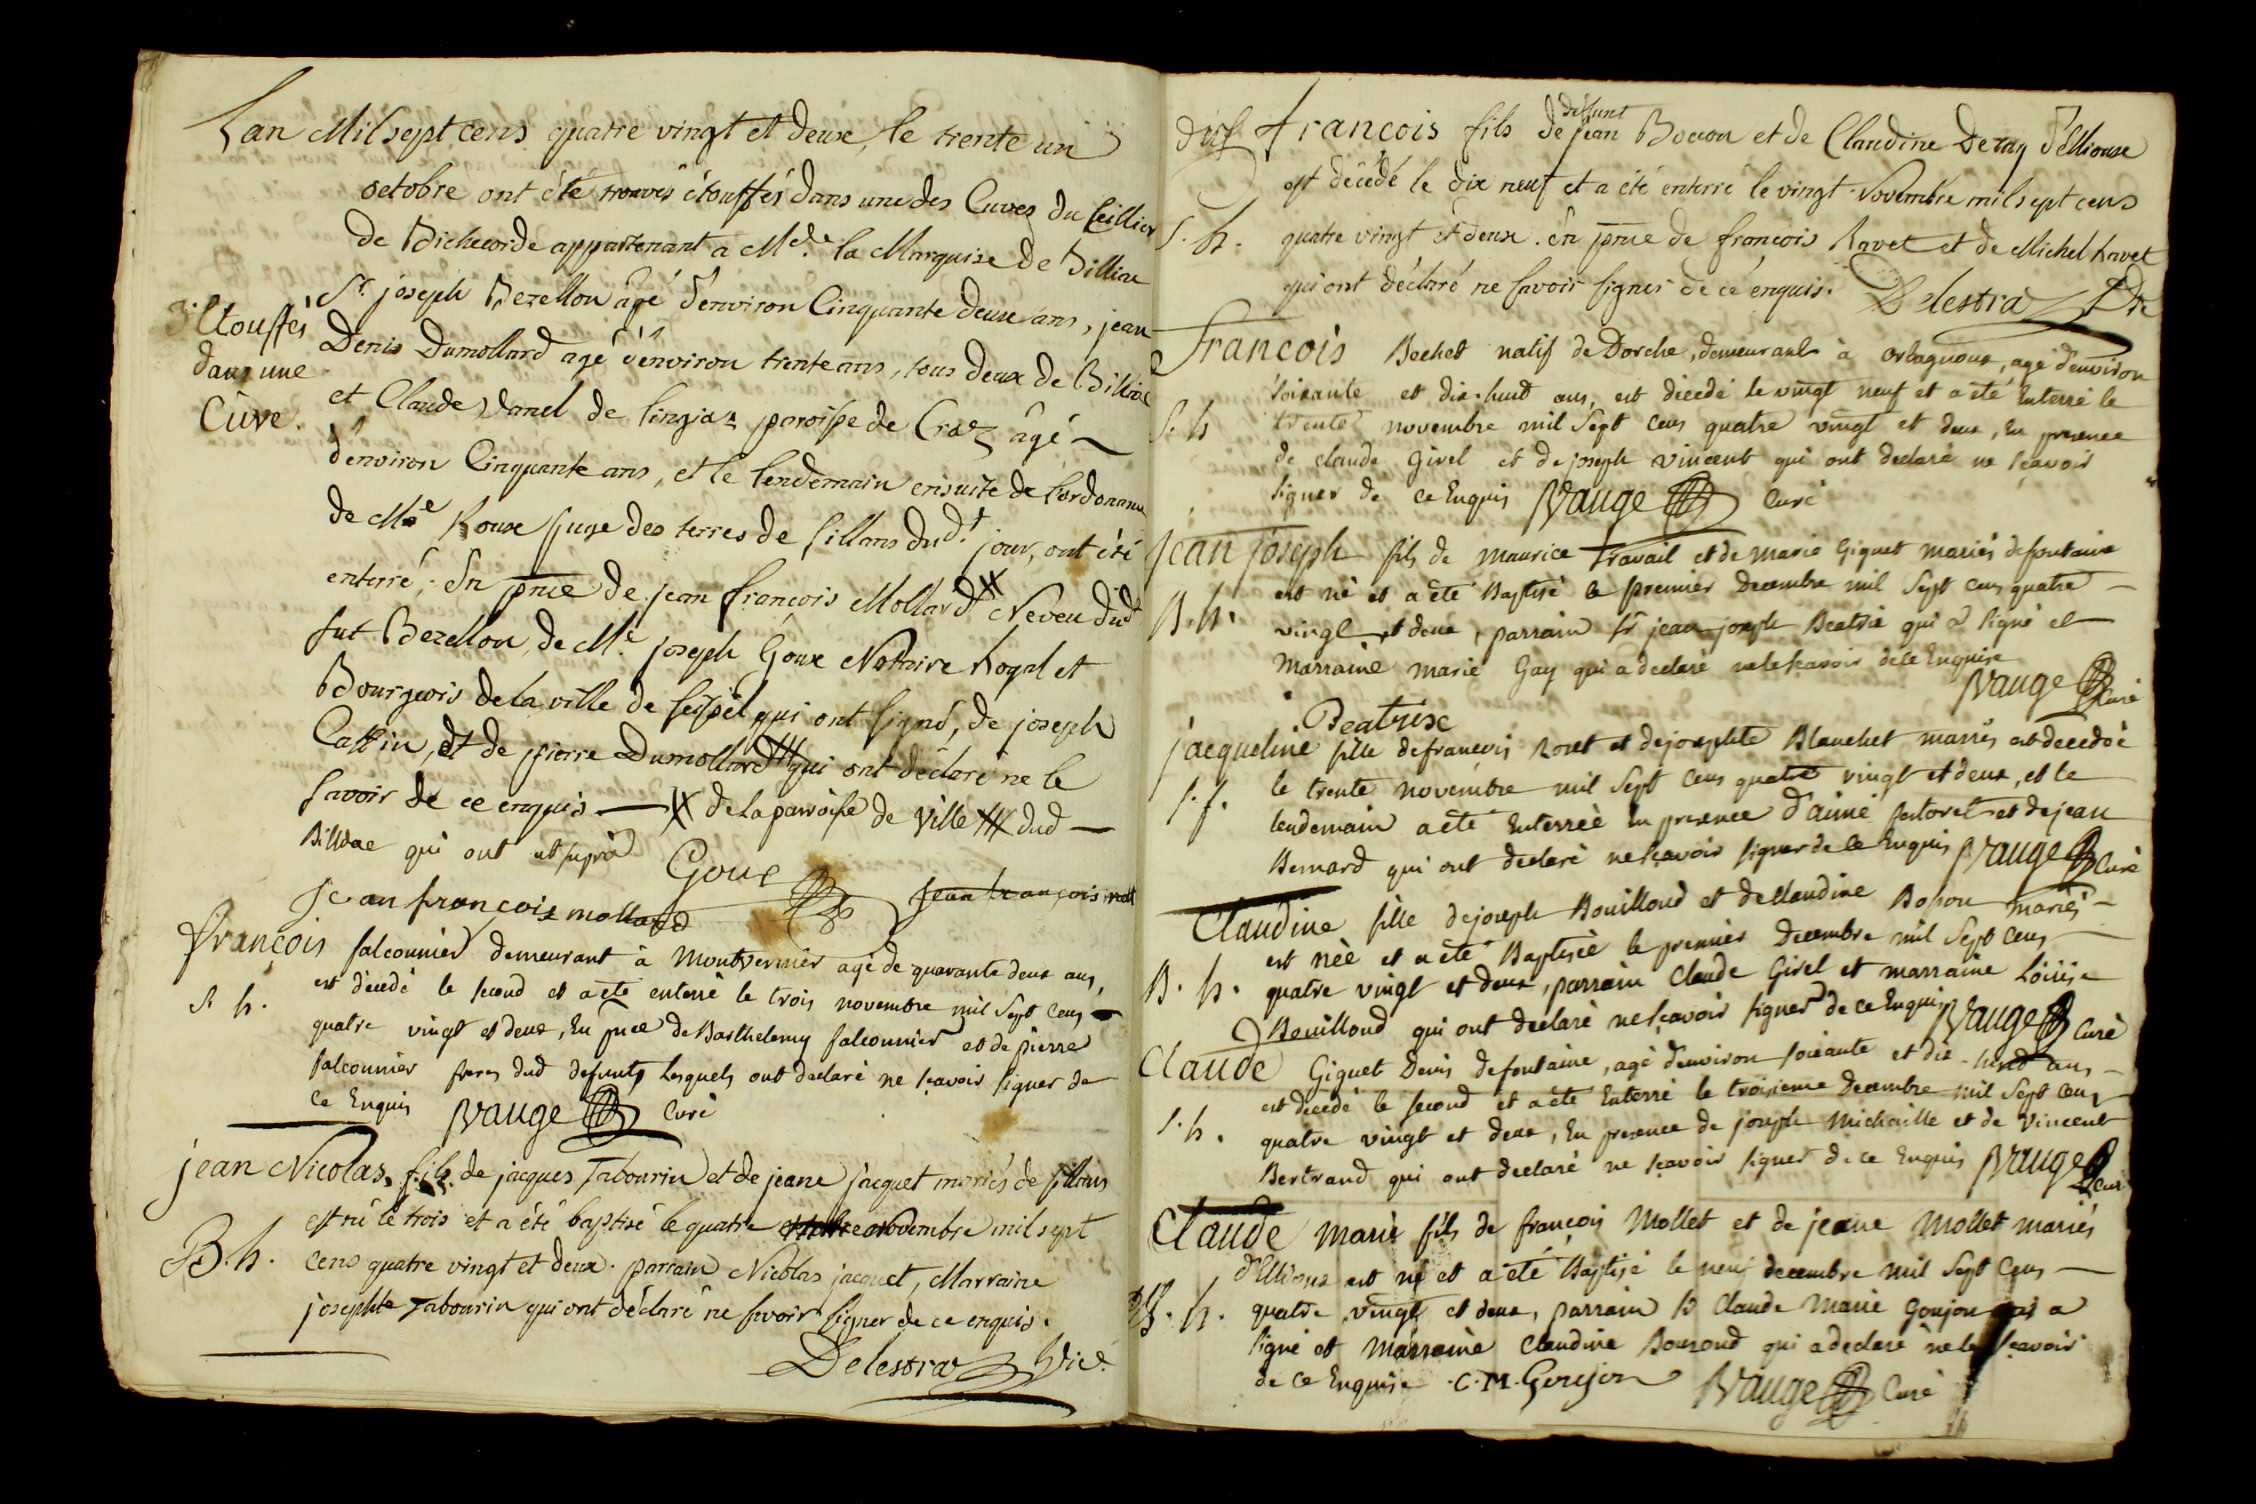 Lan Mil sept cens quatre vingt et deux, le trente un
octobre ont été trouvés étouffés dans une des Cuves du Cellier
de Bichecorde appartenant a Mde. la Marquise de Billiac
Sr. joseph Bezellon âgé d'environ Cinquante deux ans, jean
3 Etouffés
dans une
Cuve.
Denis Dumollard agé d'environ trente ans, tous deux de Billiac
et Claude Vanel de lingiaz paroisse de Craz âgé
d'environ Cinquante ans, et le lendemain ensuite de l'ordonance
de Me Roux Juge des terres de Sillans dud.t jour, ont été
enterré; En pnce de jean françois Mollard # Neveu dud
fut Bezellon, de Me. joseph Goux Nottaire Royal et
Bourgeois de la ville de seissel qui ont signé, de joseph
Cattin, et de pierre Dumollard # qui ont déclaré ne le
savoir de ce enquis — # de la parroisse de ville # dud —
Billiac qui ont ut supra
Goux
Jean françois mollard
Jean françois moll
françois falconnier demeurant à Montvernier agé de quarante deux ans,
est décedé le second et a été enterré le trois novembre mil sept cens
S. h.
quatre vingt et deux, En pnce de Barthelemy falconnier et de pierre
falconnier freres dud defunt, lesquels ont declaré ne sçavoir signer de
ce Enquis Vauge Curé
jean Nicolas, fils de jacques Tabourin et de jeane jacquet mariés de sillans
est né le trois et a été baptisé le quatre novembre mil sept
B. h.
cens quatre vingt et deux. parrain Nicolas jacquet, Marraine
josephte Tabourin qui ont déclaré ne savoir signer de ce enquis.
Delestra Vic.
françois fils de deffunt jean Bovon et de Claudine Deray d'Ellioux
est décédé le dix neuf et a été enterré le vingt Novembre mil sept cens
S. h.
quatre vingt et deux. en pnce de françois Ravet et de Michel Ravet
qui ont déclaré ne savoir signer de ce enquis. Delestra Vic
françois Bechet natif de Dorche, demeurant à orbagnoux, agé d'environ
soixante et dix-huit ans, est décedé le vingt neuf et a été Enterré le
S. h
trente novembre mil Sept Cens quatre vingt et deux, En presence
de claude Girel et de joseph vincent qui ont declaré ne sçavoir
signer de ce Enquis Vauge Curé
jean joseph fils de maurice Travail et de marie Giguet mariés de fontaine
est né et a été Baptisé le premier Decembre mil Sept Cens quatre
B. h.
vingt et deux, parrain Sr jean joseph Beatrix qui a signé et
marraine marie Gay qui a declaré ne le sçavoir de ce Enquise
Vauge Curé
Beatrix
jacqueline fille de françois Roset et de josephte Blanchet mariés est decedée
le trente novembre mil Sept Cens quatre vingt et deux, et le
S. f.
lendemain a été Enterrée en presence d'aimé pestoret et de jean
Bernard qui ont declaré ne sçavoir signer de ce Enquis Vauge Curé
Claudine fille de joseph Bouilloud et de claudine Boson mariés
est née et a été Baptisée le premier Decembre mil Sept Cens
B. h.
quatre vingt et deux, parrain Claude Girel et marraine Loüise
Bouilloud qui ont declaré ne sçavoir signer de ce Enquis Vauge Curé
Claude Giguet Denis de fontaine, agé d'environ soixante et dix-huit ans
est decedé le second et a été Enterré le troisieme Decembre mil Sept Cens
S. h.
quatre vingt et deux, En presence de joseph Michaille et de Vincent
Bertrand qui ont declaré ne sçavoir signer de ce Enquis Vauge Cur
Claude Marie fils de françois Mollet et de jeane Mollet mariés
d'Ellioux est né et a été Baptisé le neuf decembre mil Sept Cens
B. h.
quatre vingt et deux, parrain Sr Claude Marie Goujon qui a
signé et Marraine Claudine Bouzoud qui a declaré ne le sçavoir
de ce Enquise C. M. Goujon Vauge Curé